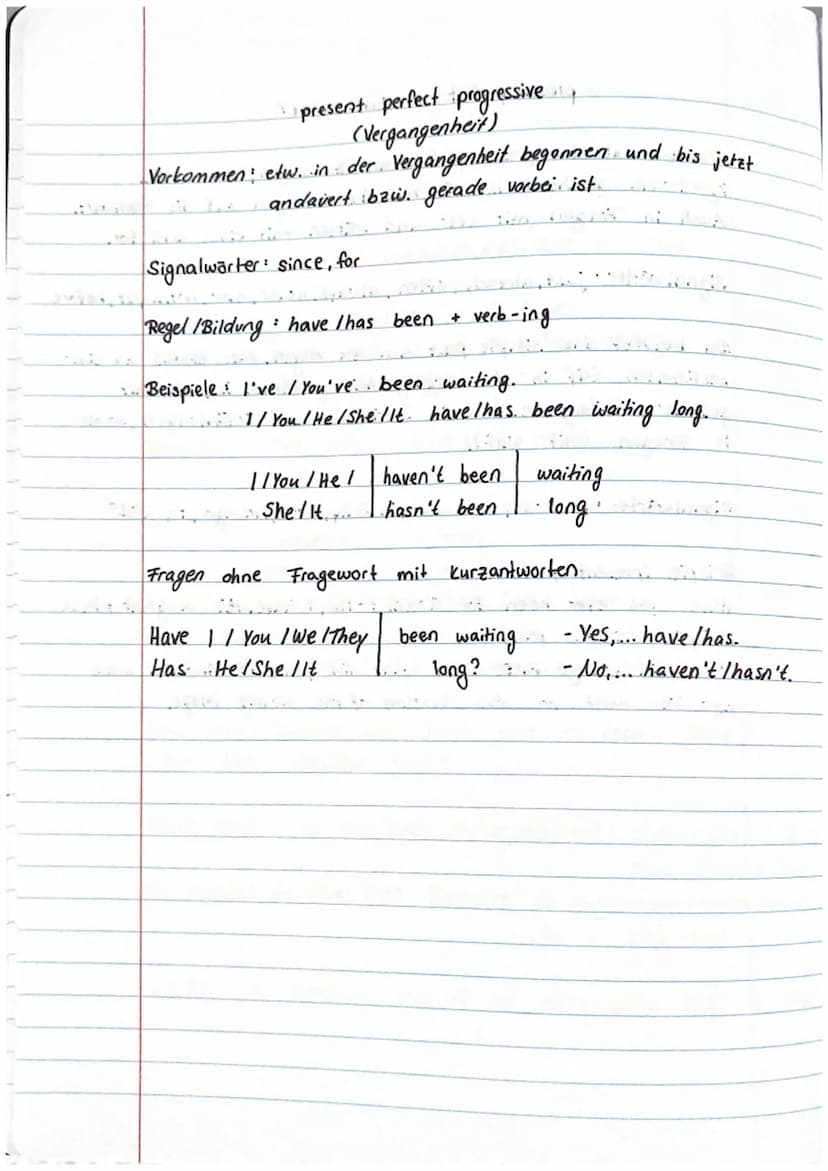 present perfect progressive
(Vergangenheit)
Vorkommen: etw. in der Vergangenheit begonnen und bis jetzt
andauert bzw. gerade vorbei ist
Signalwörter: since, for
Regel /Bildung: have /has been + verb-ing
Beispiele: I've / You've been waiting.
I / You / He / She / It have/has been waiting long.
I / You / He / haven't been waiting
She / It hasn't been long
Fragen ohne Fragewort mit Kurzantworten
Have I / You / We / They been waiting - Yes,... have/has.
Has He / She / It long? - No,... haven't / hasn't.